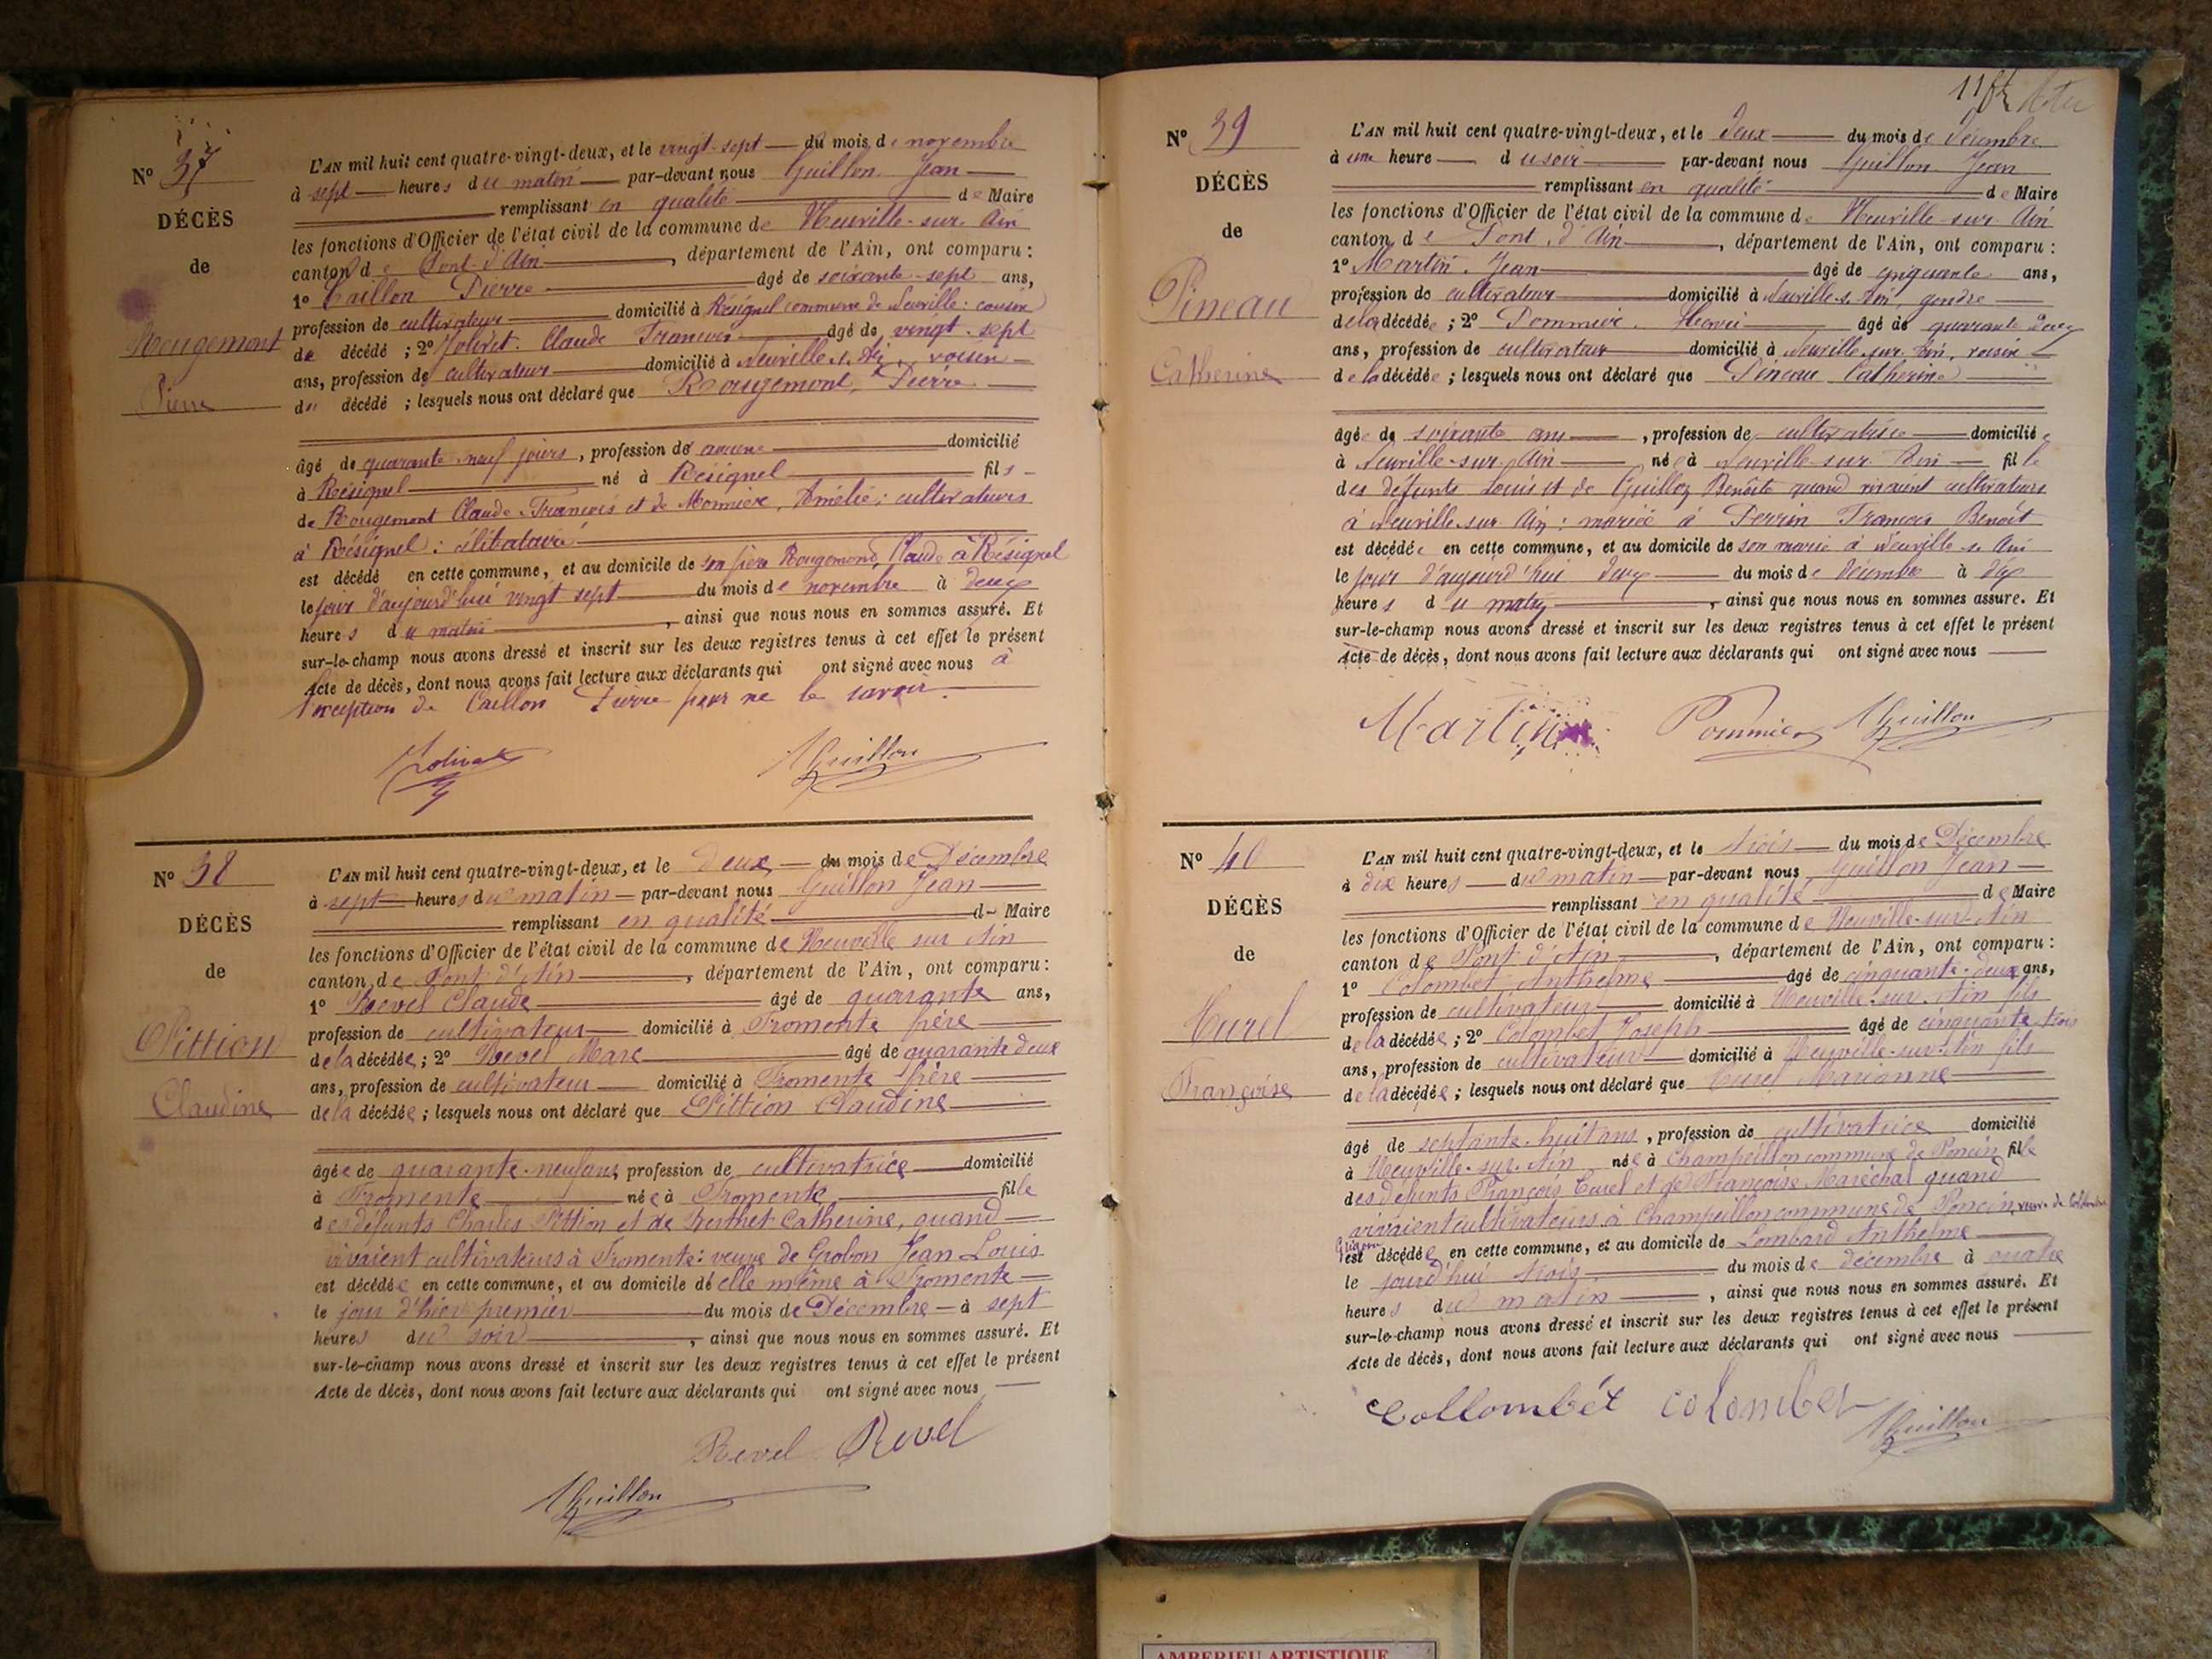 N° 37
DÉCÈS
de
Rougemont
Pierre
L'AN mil huit cent quatre-vingt-deux, et le vingt-sept du mois de novembre
à sept heures du matin par-devant nous Guillon Jean
remplissant en qualité de Maire
les fonctions d'Officier de l'état civil de la commune de Neuville-sur-Ain
canton de Pont-d'Ain, département de l'Ain, ont comparu :
1° Caillon Pierre âgé de soixante-sept ans,
profession de cultivateur domicilié à Résignel commune de Neuville : cousin
du décédé ; 2° Jolivet Claude François âgé de vingt-sept
ans, profession de cultivateur domicilié à Neuville s. Ain, voisin
du décédé ; lesquels nous ont déclaré que Rougemont, Pierre
âgé de quarante-neuf jours, profession de aucune domicilié
à Résignel né à Résignel fils
de Rougemont Claude-François et de Monnier, Amélie ; cultivateurs
à Résignel ; célibataire
est décédé en cette commune, et au domicile de son père Rougemond, Claude à Résignel
le jour d'aujourd'hui vingt sept du mois de novembre à deux
heures du matin, ainsi que nous nous en sommes assuré. Et
sur-le-champ nous avons dressé et inscrit sur les deux registres tenus à cet effet le présent
Acte de décès, dont nous avons fait lecture aux déclarants qui ont signé avec nous à
l'exception de Caillon Pierre pour ne le savoir.
Jolivet Guillon
N° 38
DÉCÈS
de
Pittion
Claudine
L'AN mil huit cent quatre-vingt-deux, et le deux du mois de Décembre
à sept heures du matin par-devant nous Guillon Jean
remplissant en qualité de Maire
les fonctions d'Officier de l'état civil de la commune de Neuville sur Ain
canton de Pont d'Ain, département de l'Ain, ont comparu :
1° Revel Claude âgé de quarante ans,
profession de cultivateur domicilié à Fromente frère
de la décédée ; 2° Revel Marc âgé de quarante deux
ans, profession de cultivateur domicilié à Fromente frère
de la décédée ; lesquels nous ont déclaré que Pittion Claudine
âgée de quarante-neuf ans, profession de cultivatrice domicilié
à Fromente née à Fromente fille
des défunts Charles Pittion et de Berthet Catherine, quand
vivaient cultivateurs à Fromente : veuve de Grobon Jean Louis
est décédée en cette commune, et au domicile de elle même à Fromente
le jour d'hier premier du mois de Décembre à sept
heures du soir, ainsi que nous nous en sommes assuré. Et
sur-le-champ nous avons dressé et inscrit sur les deux registres tenus à cet effet le présent
Acte de décès, dont nous avons fait lecture aux déclarants qui ont signé avec nous
Revel Revel
Guillon
11
N° 39
DÉCÈS
de
Pineau
Catherine
L'AN mil huit cent quatre-vingt-deux, et le deux du mois de Décembre
à une heure du soir par-devant nous Guillon Jean
remplissant en qualité de Maire
les fonctions d'Officier de l'état civil de la commune de Neuville-sur-Ain
canton de Pont d'Ain, département de l'Ain, ont comparu :
1° Martin Jean âgé de cinquante ans,
profession de cultivateur domicilié à Neuville s. Ain, gendre
de la décédée ; 2° Pommier âgé de quarante deux
ans, profession de cultivateur domicilié à Neuville sur Ain, voisin
de la décédée ; lesquels nous ont déclaré que Pineau Catherine
âgée de soixante ans, profession de cultivatrice domiciliée
à Neuville-sur-Ain née à Neuville-sur-Ain fille
des défunts Louis et de Guilloz Benoîte quand vivaient cultivateurs
à Neuville sur Ain : mariée à Perrin François Benoît
est décédée en cette commune, et au domicile de son marie à Neuville s. Ain
le jour d'aujourd'hui deux du mois de décembre à dix
heures du matin, ainsi que nous nous en sommes assuré. Et
sur-le-champ nous avons dressé et inscrit sur les deux registres tenus à cet effet le présent
Acte de décès, dont nous avons fait lecture aux déclarants qui ont signé avec nous
Martin Pommier Guillon
N° 40
DÉCÈS
de
Curel
Françoise
L'AN mil huit cent quatre-vingt-deux, et le trois du mois de Décembre
à dix heures du matin par-devant nous Guillon Jean
remplissant en qualité de Maire
les fonctions d'Officier de l'état civil de la commune de Neuville-sur-Ain
canton de Pont d'Ain, département de l'Ain, ont comparu :
1° Colombet Anthelme âgé de cinquante-deux ans,
profession de cultivateur domicilié à Neuville-sur-Ain fils
de la décédée ; 2° Colombet Joseph âgé de cinquante trois
ans, profession de cultivateur domicilié à Neuville-sur-Ain fils
de la décédée ; lesquels nous ont déclaré que Curel Marianne
âgé de septante-huit ans, profession de cultivatrice domicilié
à Neuville-sur-Ain née à Champeillon commune de Poncin fille
des défunts François Curel et de Françoise Maréchal quand
vivaient cultivateurs à Champeillon commune de Poncin, veuve de
est décédée en cette commune, et au domicile de Lombard Anthelme
le jourd'hui trois du mois de décembre à quatre
heures du matin, ainsi que nous nous en sommes assuré. Et
sur-le-champ nous avons dressé et inscrit sur les deux registres tenus à cet effet le présent
Acte de décès, dont nous avons fait lecture aux déclarants qui ont signé avec nous
Collombét colombet
Guillon
AMBERIEU ARTISTIQUE